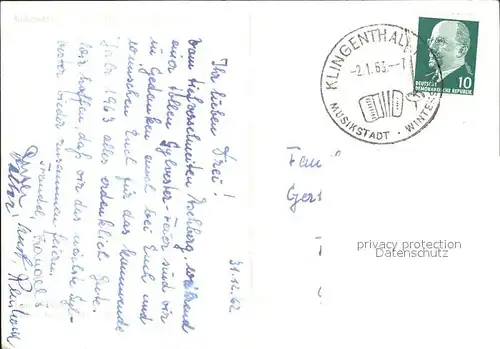 31.12.62
Ihr lieben Drei!
Vom tiefverschneiten Aschberg, während
einer tollen Sylvester-Feier sind wir
in Gedanken auch bei Euch und
wünschen Euch für das kommende
Jahr 1963 alles erdenklich Gute.
Wir hoffen, daß wir das nächste Syl-
vester wieder zusammen feiern.
KLINGENTHAL
-2.1.63.-
MUSIKSTADT · WINTERS
10
DEUTSCHE
DEMOKRATISCHE REPUBLIK
Fam
Gers
privacy protection
Datenschutz